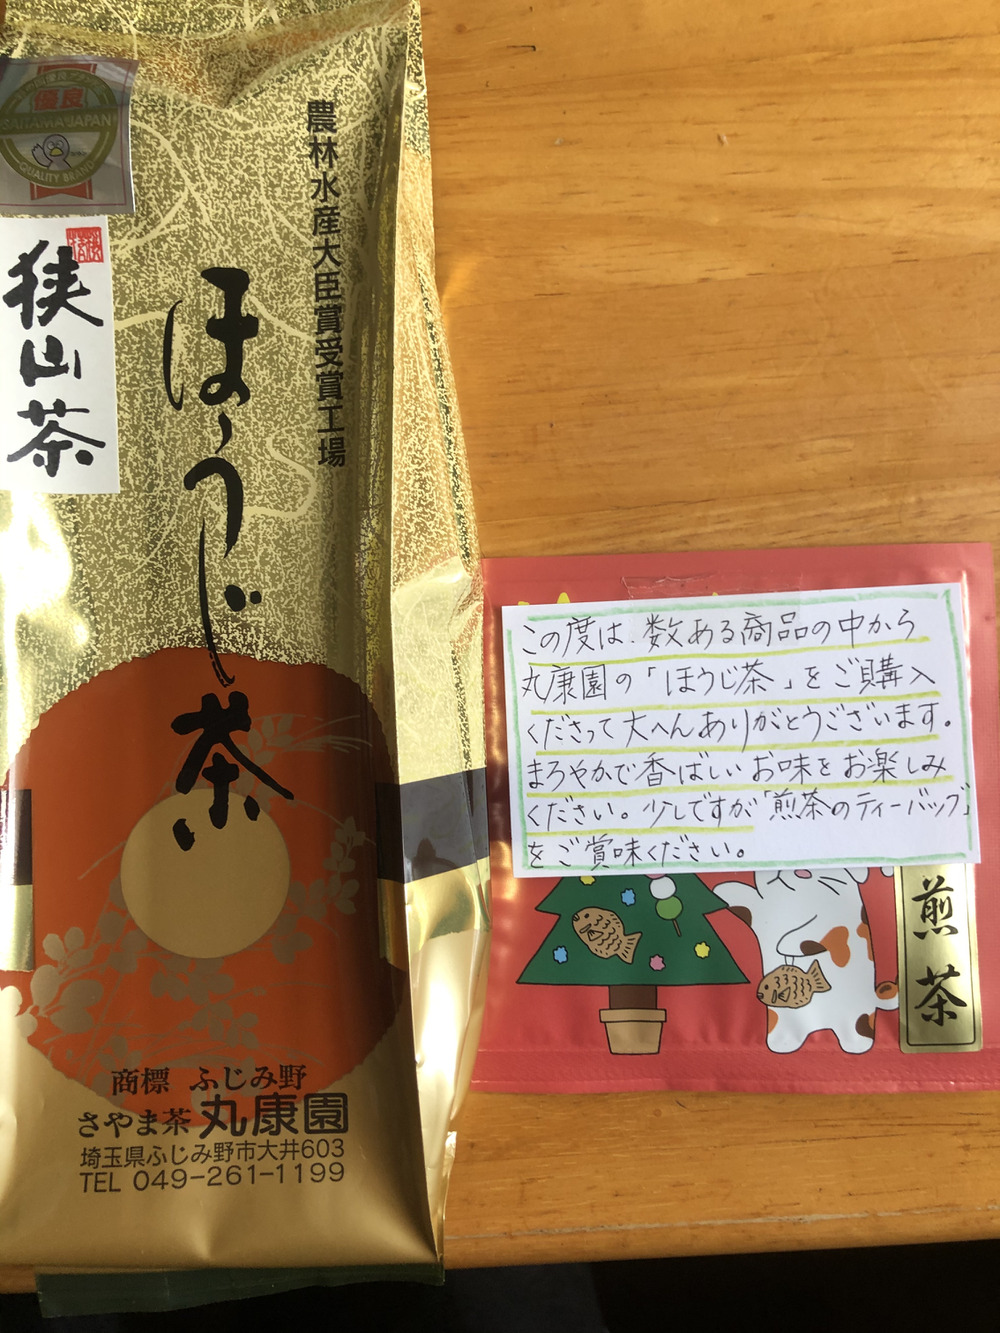 優良
SAITAMA JAPAN
QUALITY BRAND
狭山茶
農林水産大臣賞受賞工場
ほうじ茶
商標 ふじみ野
さやま茶 丸康園
埼玉県ふじみ野市大井603
TEL 049-261-1199
この度は、数ある商品の中から
丸康園の「ほうじ茶」をご購入
くださって大へんありがとうございます。
まろやかで香ばしいお味をお楽しみ
ください。少しですが「煎茶のティーバッグ」
をご賞味ください。
煎茶